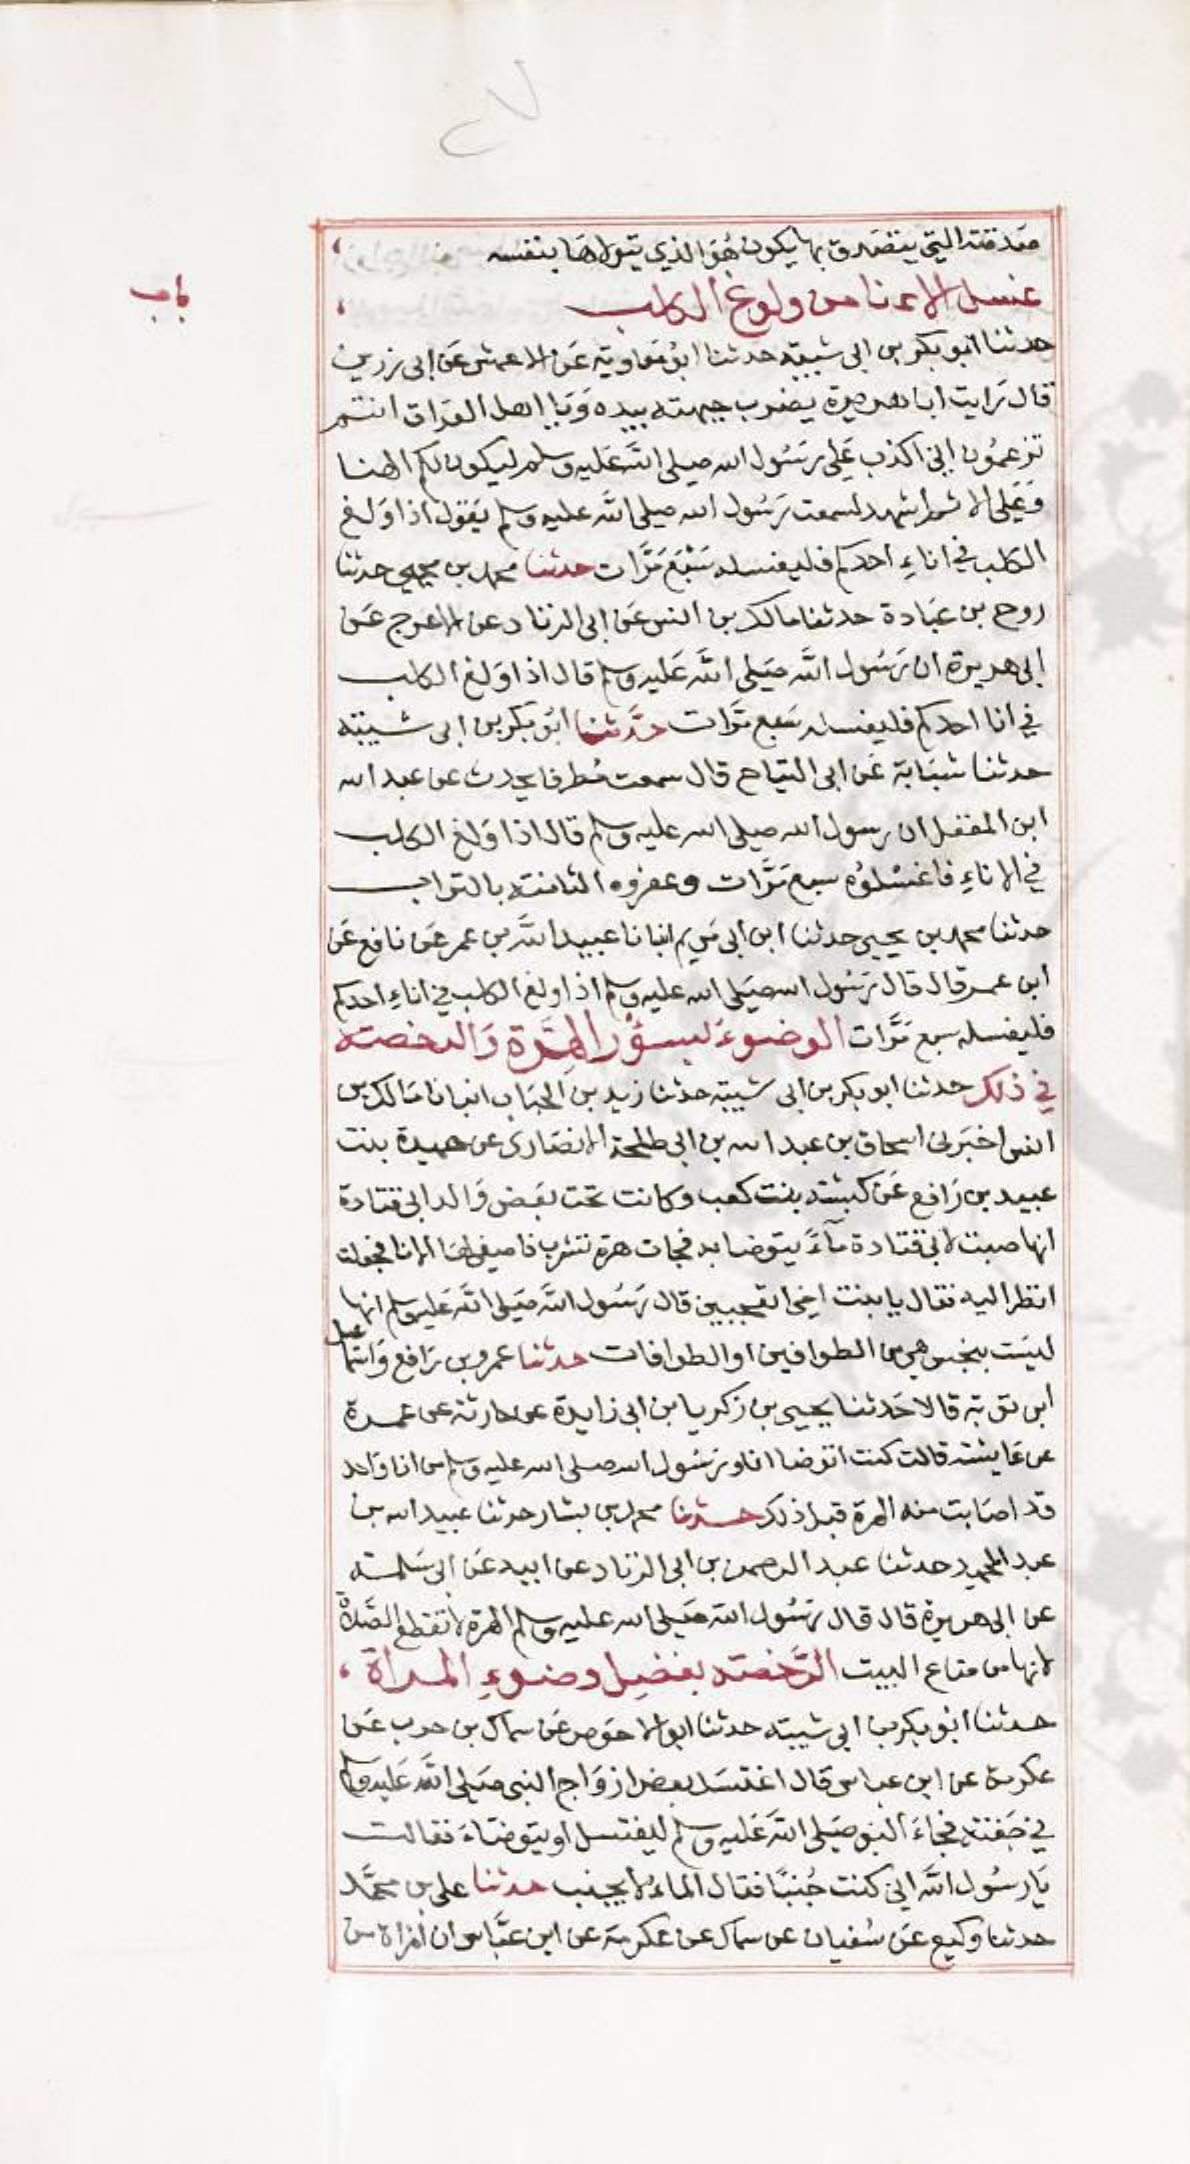 صدقته التي يتصدق بها يكون هُوَ الذي يتولاهَا بنفسه
باب
غسل الاناء من ولوغ الكلب
حدثنا ابو بكر بن ابى شيبة حدثنا ابوُ مَعاوية عَن الاعمش عَن ابى زرين
قال رَايت ابا هريرة يضرب جبهته بيده وَيَا اهل العراق انتم
تزعمُون اني اكذب عَلى رَسُول الله صلى الله عَليه وسلم ليكون لكم الهنا
وَعَلى الاثم اشهد لسمعت رَسُول الله صلى الله عليه وسلم يَقول اذا وَلغ
الكلب في اناءِ احدكم فليغسله سَبْعَ مَرَّات حدثنا محمد بن يحيى حدثنا
روح بن عبَادة حدثنا مالك بن انس عَن ابى الزناد عن الاعرج عَن
ابى هريرة ان رَسُول الله صَلى الله عَليه وسلم قال اذا وَلغ الكلب
في انا احدكم فليغسله سَبع مَرَّات حدَّثنا ابوُ بَكر بن ابى شيبَة
حدثنا شبَابَة عَن ابى التياح قال سمعت مُطرفا يحدث عن عبد الله
ابن المغفل ان رسول الله صلى الله عليه وسلم قال اذا وَلغ الكلب
في الاناءِ فاغسْلوُه سبع مَرَّات وعفروه الثامنة بالتراب
حدثنا محمد بن يحيى حدثنا ابن ابى مَريم انبانا عبيد الله بن عمر عَن نافع عَن
ابن عمر قال قال رَسُول الله صَلى الله عليه وسلم اذا ولغ الكلب في اناءِ احدكم
فليغسله سبع مَرَّات الوضوءَ بسؤر الهِرَة وَالرخصة
في ذلك حدثنا ابو بكر بن ابى شيبَة حدثنا زيد بن الحبَاب انبانا مَالك بن
انس اخبَرنى اسحاق بن عبد الله بن ابى طلحة الانصَارى عن حميدة بنت
عبيد بن رَافع عَن كبشة بنت كعب وكانت تحت بَعَض وَالد ابى قتادة
انها صبت لابى قتادة مآءً يتوضا به فجات هرة تشرب فاصغى لهَا الانا فجعلت
انظر اليه فقال يا بنت اخى اتعجبين قال رَسُول الله صَلى الله عَليه وسلم انها
ليسَت بنجس هي من الطوافين او الطوافات حدثنا عمرو بن رَافع وَاسَمَاعيل
ابن توبَة قالا حَدثنا يحيى بن زكريا بن ابى زايدة عن حارثة عن عمرة
عن عَايشة قالت كنت اتوضا انا ورَسُول الله صلى الله عليه وسلم من انا وَاحد
قد اصَابت منه الهرة قبل ذلك حدثنا محمد بن بشار حدثنا عبيد الله بن
عبد المجيد حدثنا عبد الرحمن بن ابى الزناد عن ابيه عَن ابى سَلمة
عن ابى هريرة قال قال رَسُول الله صَلى الله عليه وسلم الهرة لا تقطع الصَّلاَة
لانها من متاع البيت الرَّخصة بفضل وضوءِ المراة
حدثنا ابوُ بكر بن ابى شيبة حدثنا ابو الاحوَص عَن سماك بن حرب عَن
عكرمة عن ابن عباس قال اغتسَل بعض ازوَاج النبى صَلى الله عَليه وسلم
في جَفنة فجَاءَ النبى صَلى الله عَليه وسلم ليغتسل او يتوضاءَ فقالت
يَا رسُول الله انى كنت جُنبًا فقال الماءُ لا يجنب حدثنا على بن محمَّد
حدثنا وكيع عَن سُفيان عن سماك عن عكرمة عن ابن عبَّاس ان امْراة من